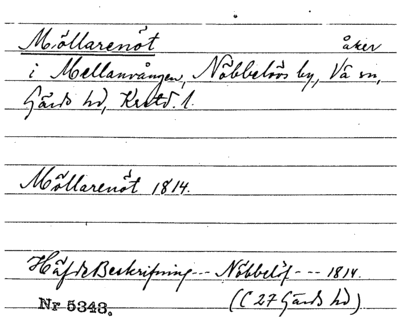 Möllarenöt åker
i Mellanvången, Nöbbelövs by, Vä sn,
Gärds hd, Krstd. l.
Möllarenöt 1814.
Häfde Beskrifning --- Nöbbelöf --- 1814.
Nr 5343. (C 27 Gärds hd)